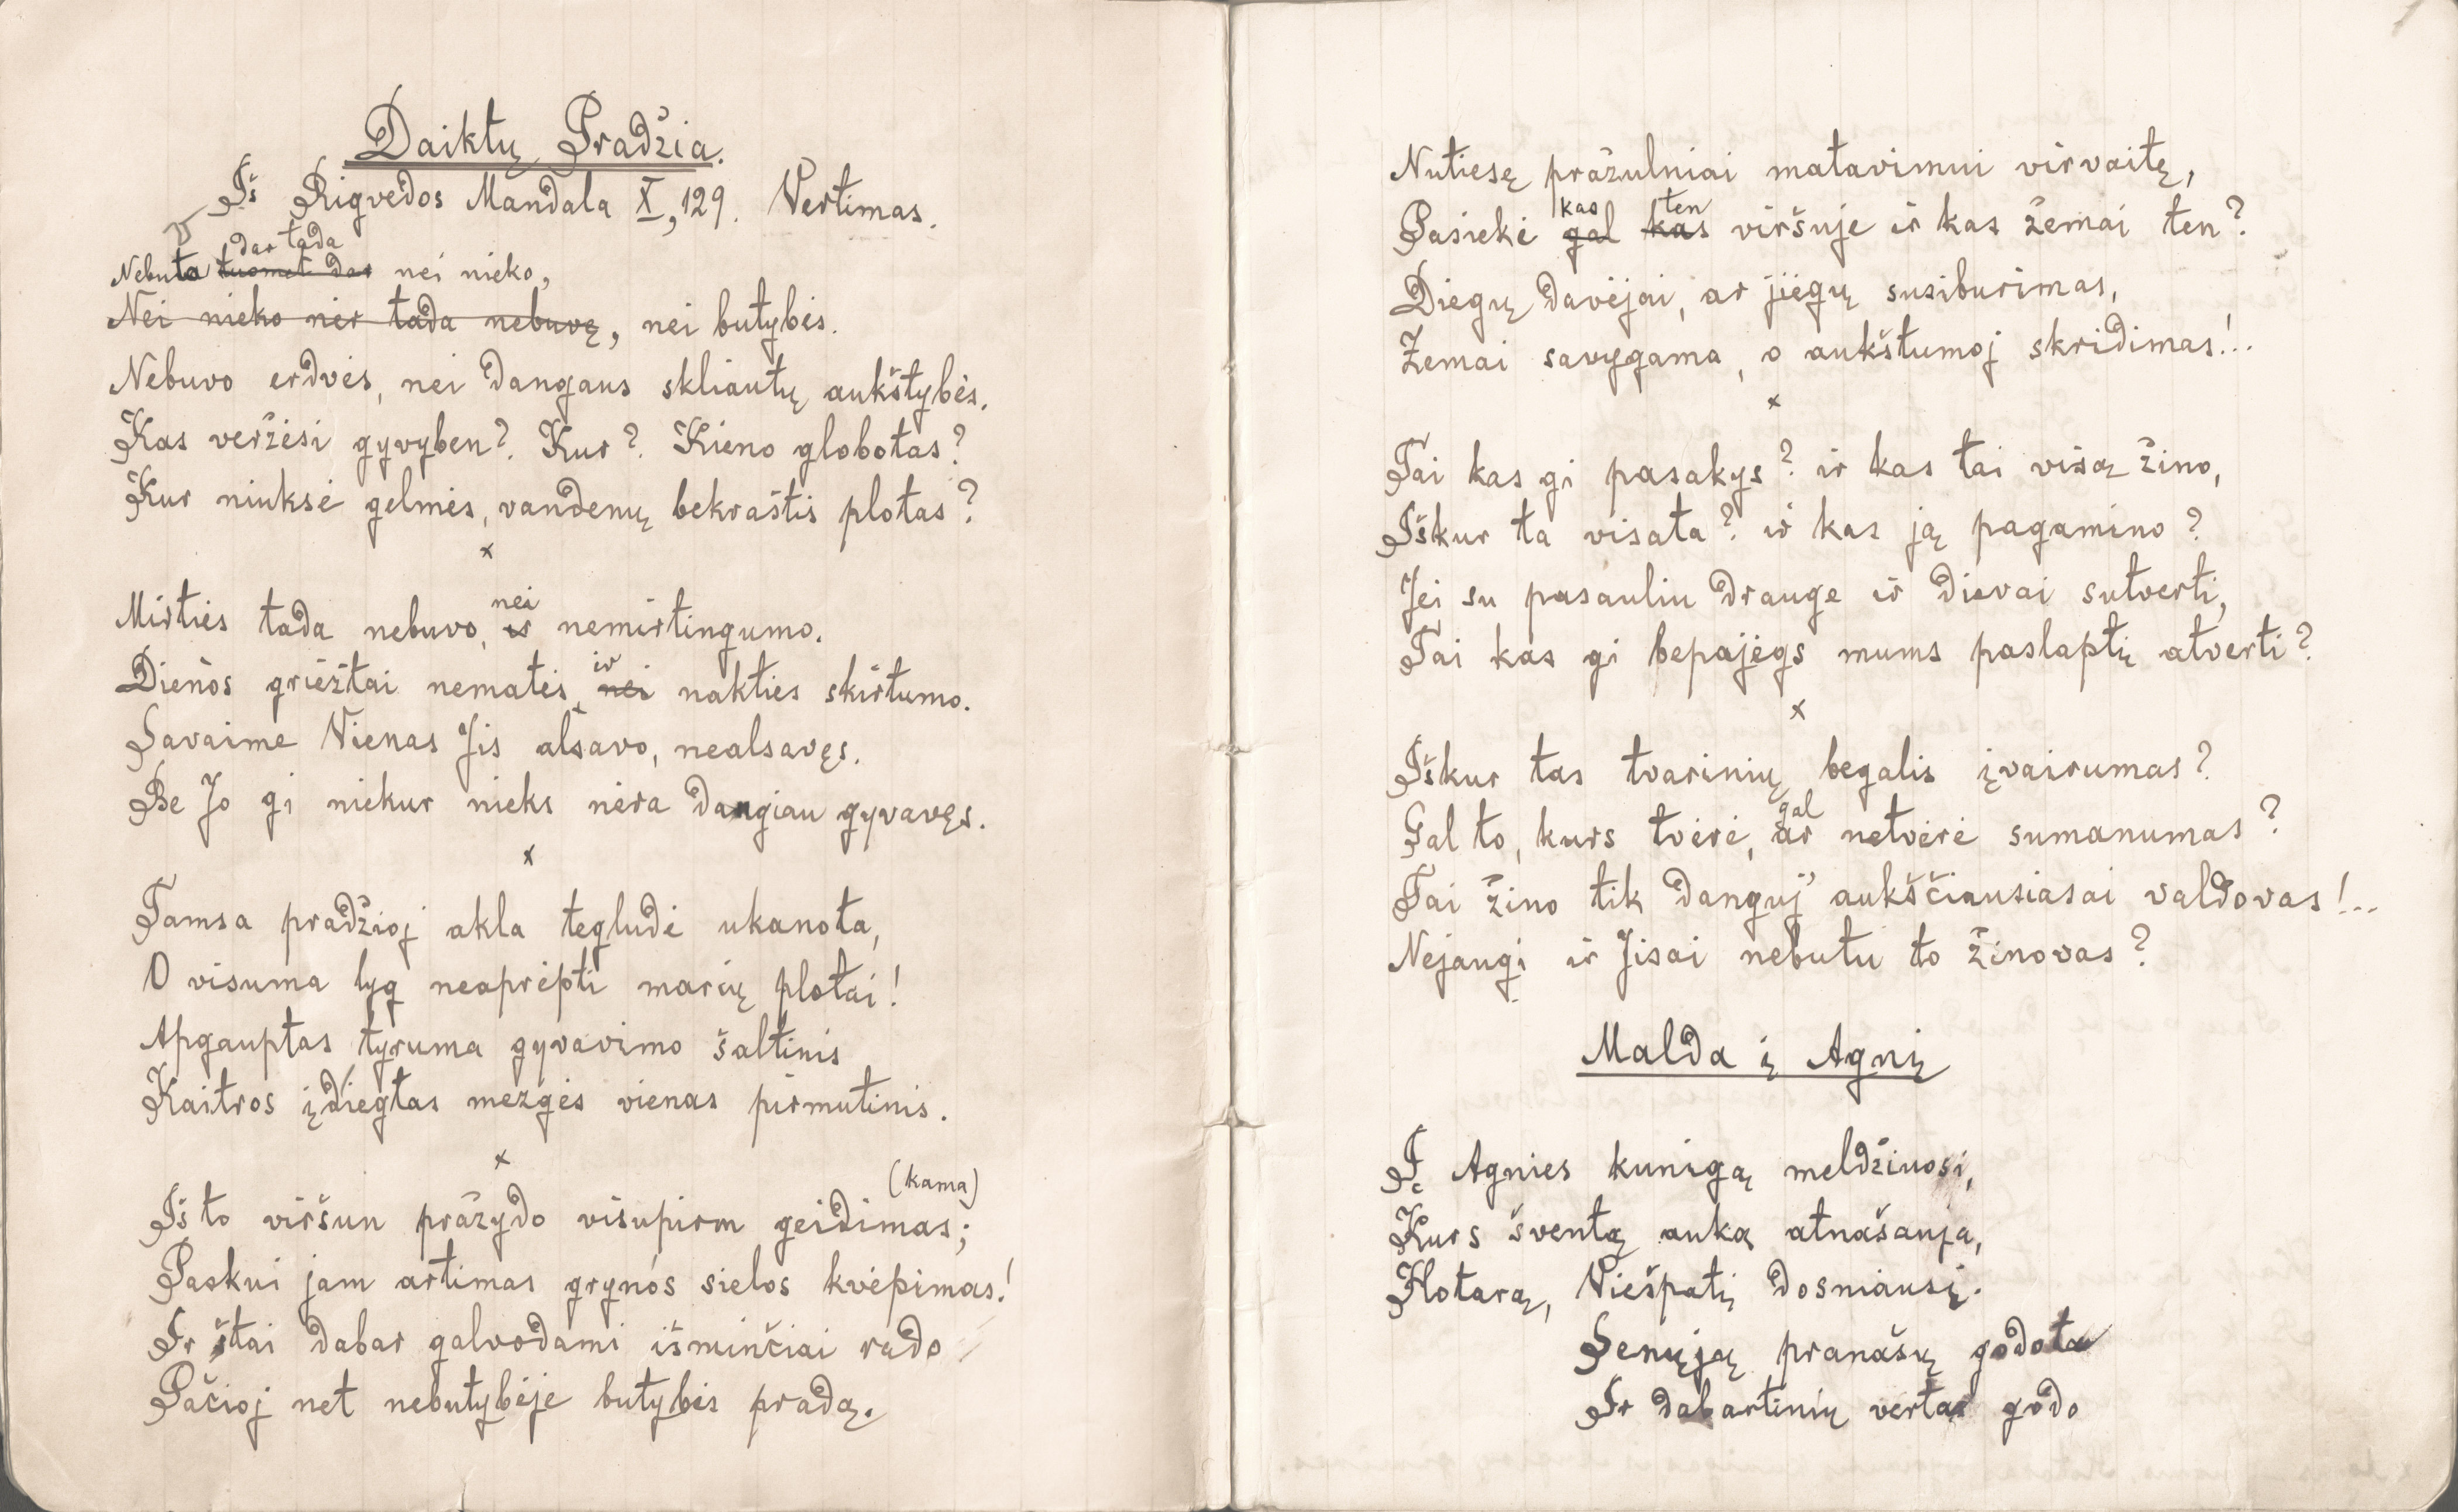 Daiktų Pradžia.
Iš Rigvedos Mandala X, 129. Vertimas.
dar tada
Nebuta tuomet dar nei nieko,
Nei nieko nėr tada nebuvę, nei butybės.
Nebuvo erdvės, nei dangaus skliautų aukštybės.
Kas veržėsi gyvyben? Kur? Kieno globotas?
Kur niuksė gelmės, vandenų bekraštis plotas?
x
nei
Mirties tada nebuvo, ir nemirtingumo.
ir
Dienos griežtai nematės, nei nakties skirtumo.
Savaime Vienas Jis alsavo, nealsavęs.
Be Jo gi niekur nieks nėra daugiau gyvavęs.
x
Tamsa pradžioj akla tegludė ukanota,
O visuma lyg neaprėpti marių plotai!
Apgauptas tyruma gyvavimo šaltinis
Kaitros įdiegtas mezgės vienas pirmutinis.
x
(kama)
Iš to viršun pražydo visupirm geidimas;
Paskui jam artimas grynos sielos kvėpimas!
Ir štai dabar galvodami išminčiai rado
Pačioj net nebutybėje butybės pradą.
Nutiesę pražulniai matavimui virvaitę,
kas ten
Pasiekė gal kas viršuje ir kas žemai ten?
Diegų davėjai, ar jiegų susiburimas,
Žemai savygama, o aukštumoj skridimas!..
x
Tai kas gi pasakys? ir kas tai visą žino,
Iškur ta visata? ir kas ją pagamino?
Jei su pasauliu drauge ir dievai sutverti,
Tai kas gi bepajėgs mums paslaptį atverti?
x
Iškur tas tvarinių begalis įvairumas?
gal
Gal to, kurs tvėrė, ar netvėrė sumanumas?
Tai žino tik danguj' aukščiausiasai valdovas!...
Nejaugi ir Jisai nebutu to žinovas?
Malda į Agnį
Į Agnies kunigą meldžiuosi,
Kurs šventą auką atnašauja,
Hotarą, Viešpatį dosniausį.
Senųjų pranašų godota
Ir dabartinių vertas godo